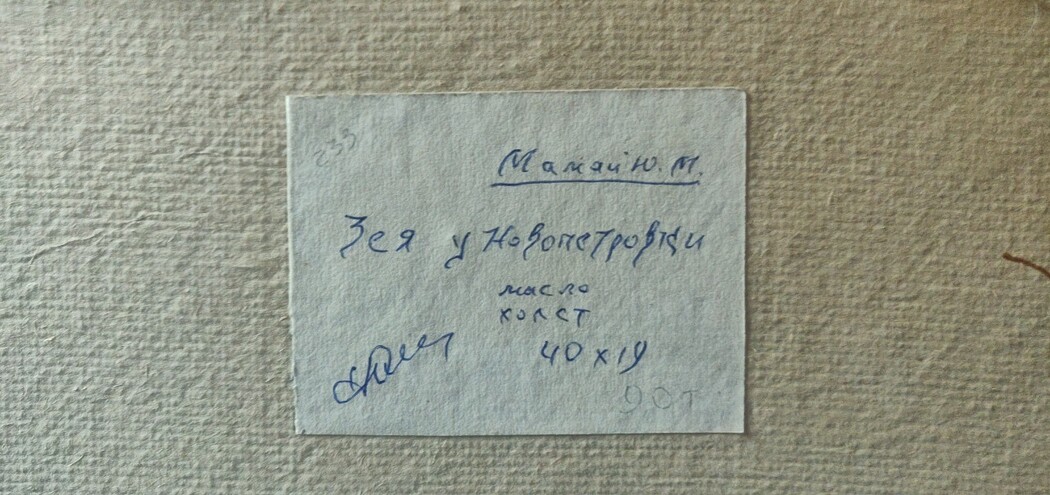 233
Мамай Ю. М.
Зея у Новопетровки
масло
холст
40 х 19
90т